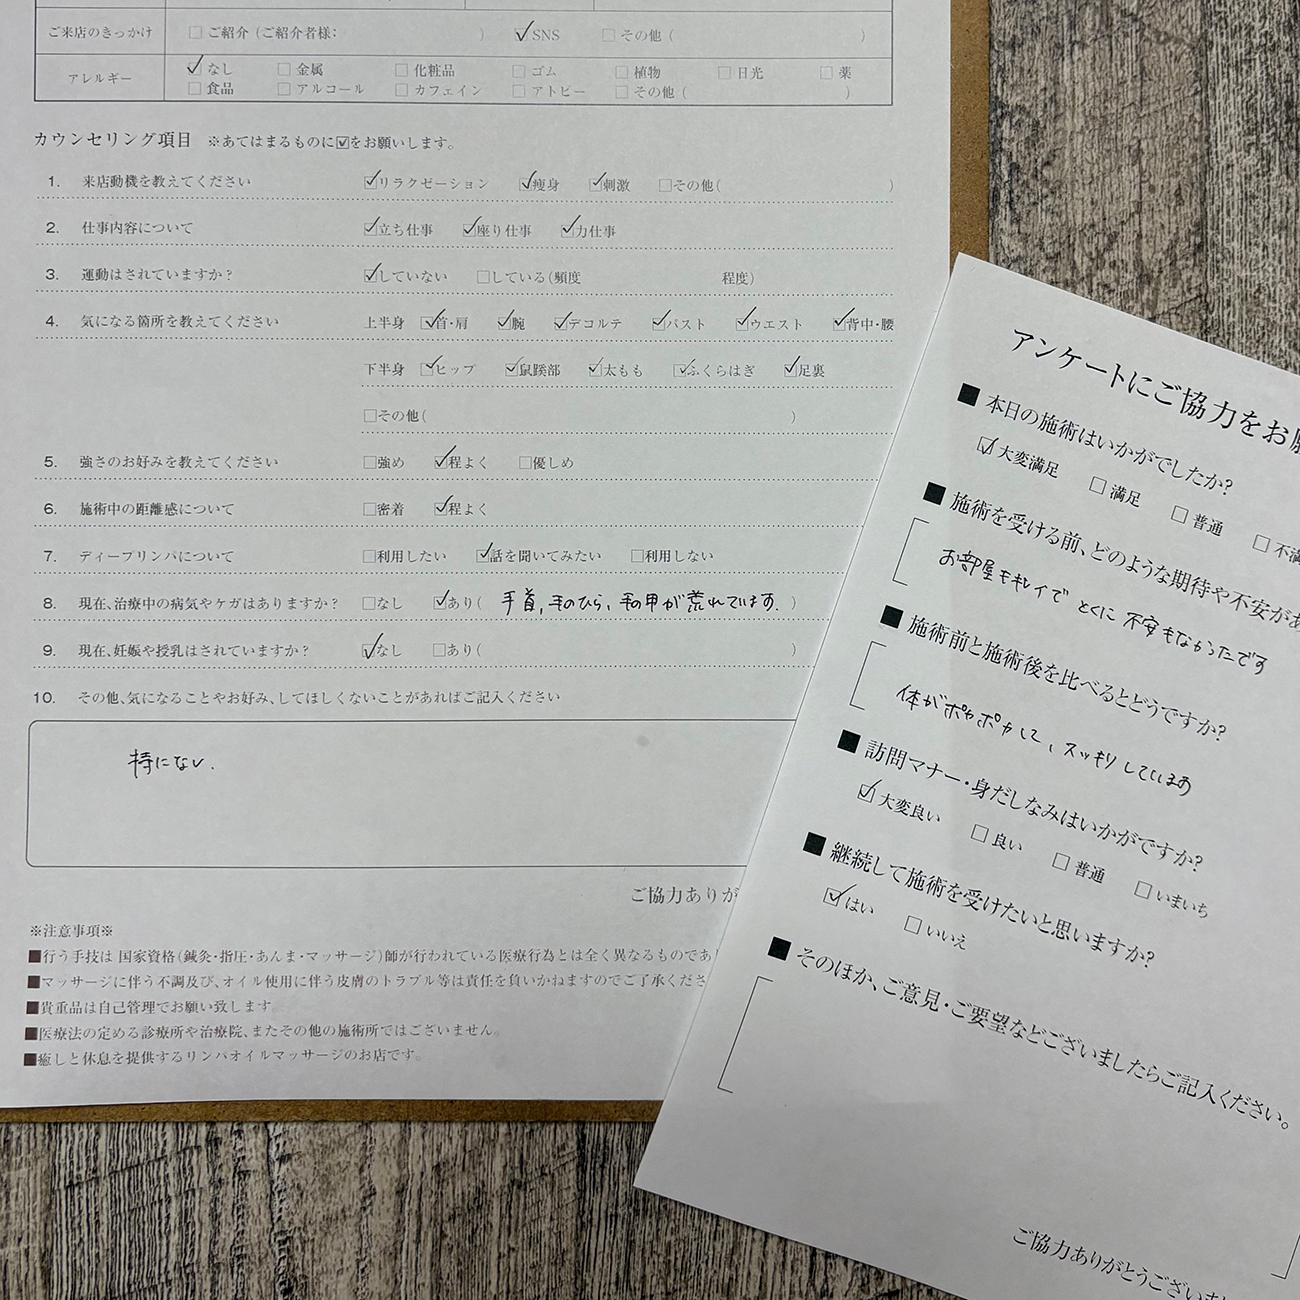 ご来店のきっかけ □ご紹介(ご紹介者様: ) ☑SNS □その他( )
アレルギー ☑なし □金属 □化粧品 □ゴム □植物 □日光 □薬
□食品 □アルコール □カフェイン □アトピー □その他( )
カウンセリング項目 ※あてはまるものに☑をお願いします。
1. 来店動機を教えてください ☑リラクゼーション ☑痩身 ☑刺激 □その他( )
2. 仕事内容について ☑立ち仕事 ☑座り仕事 ☑力仕事
3. 運動はされていますか? ☑していない □している(頻度 程度)
4. 気になる箇所を教えてください 上半身 ☑首・肩 ☑腕 ☑デコルテ ☑バスト ☑ウエスト ☑背中・腰
下半身 ☑ヒップ ☑鼠蹊部 ☑太もも ☑ふくらはぎ ☑足裏
□その他( )
5. 強さのお好みを教えてください □強め ☑程よく □優しめ
6. 施術中の距離感について □密着 ☑程よく
7. ディープリンパについて □利用したい ☑話を聞いてみたい □利用しない
8. 現在、治療中の病気やケガはありますか? □なし ☑あり( 手首,手のひら,手の甲が荒れています. )
9. 現在、妊娠や授乳はされていますか? ☑なし □あり( )
10. その他、気になることやお好み、してほしくないことがあればご記入ください
特にない.
ご協力ありが
※注意事項※
■行う手技は 国家資格(鍼灸・指圧・あんま・マッサージ)師が行われている医療行為とは全く異なるものであ
■マッサージに伴う不調及び、オイル使用に伴う皮膚のトラブル等は責任を負いかねますのでご了承くださ
■貴重品は自己管理でお願い致します。
■医療法の定める診療所や治療院、またその他の施術所ではございません。
■癒しと休息を提供するリンパオイルマッサージのお店です。
アンケートにご協力をお願
■本日の施術はいかがでしたか?
☑大変満足 □満足 □普通 □不満
■施術を受ける前、どのような期待や不安があ
お部屋もキレイで とくに 不安もなかったです
■施術前と施術後を比べるとどうですか?
体がポカポカして、スッキリしています
■訪問マナー・身だしなみはいかがですか?
☑大変良い □良い □普通 □いまいち
■継続して施術を受けたいと思いますか?
☑はい □いいえ
■そのほか、ご意見・ご要望などございましたらご記入ください。
ご協力ありがとうございまし